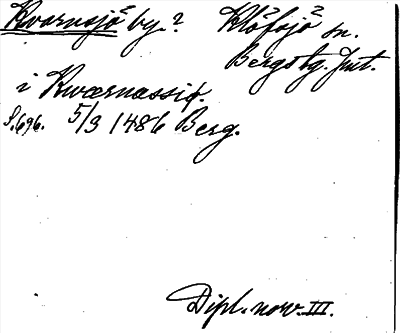 Kvarnsjö by.² Klöfsjö² sn.
Bergs tg. Jmt.
i Kwærnassiø.
S.696. 5/3 1486 Berg.
Dipl. norv. III.